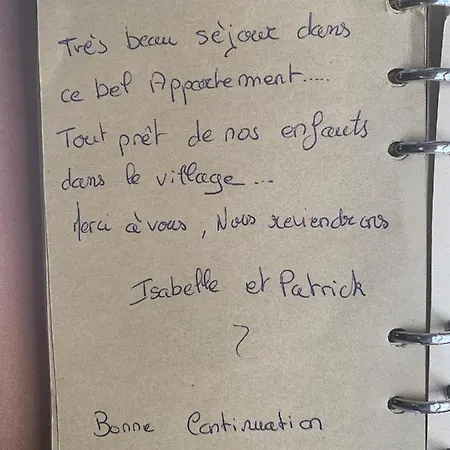 Très beau séjour dans
ce bel Appartement.....
Tout prêt de nos enfants
dans le village...
Merci à vous, Nous reviendrons
Isabelle et Patrick
Bonne Continuation